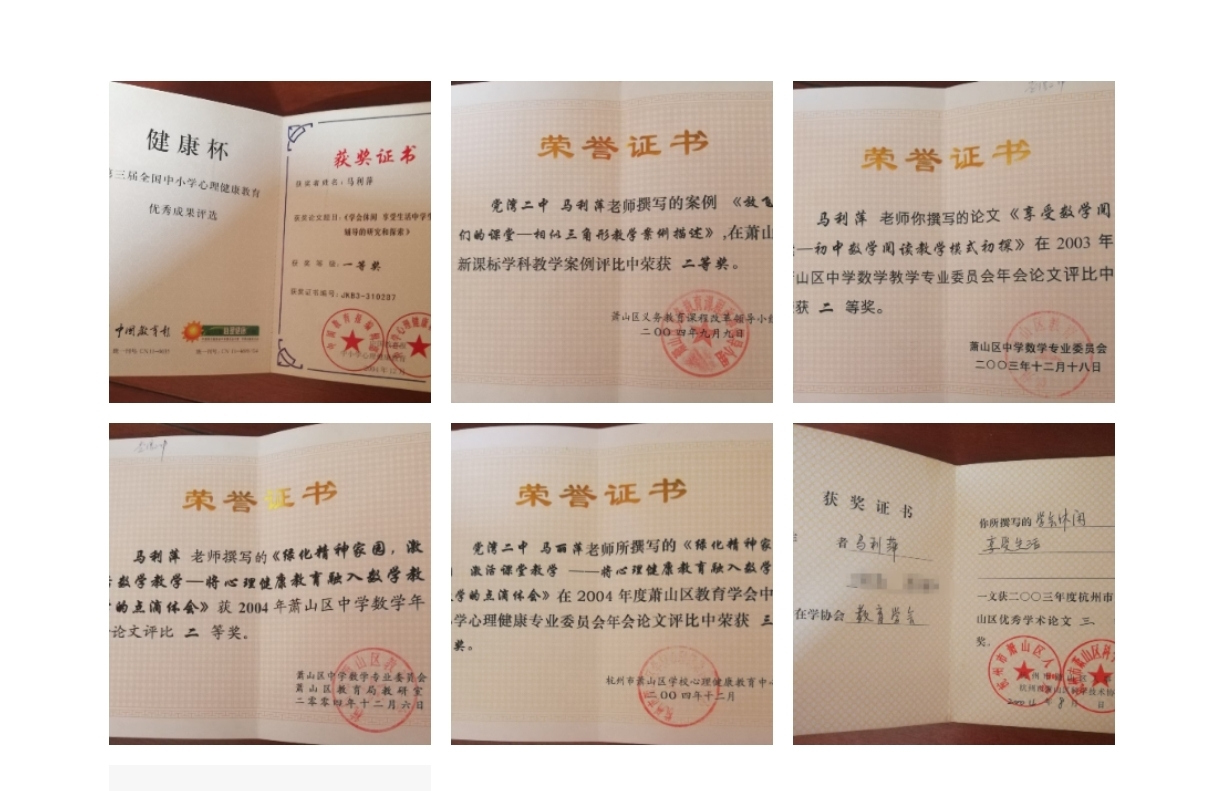 健康杯
第三届全国中小学心理健康教育
优秀成果评选
中国教育报
获奖证书
获奖者姓名：马利萍
获奖论文题目：《学会休闲 享受生活中学生
辅导的研究和探索》
获奖等级：一等奖
获奖证书编号：JKB3-310287
荣誉证书
党湾二中 马利萍老师撰写的案例 《放飞
们的课堂—相似三角形教学案例描述》,在萧山
新课标学科教学案例评比中荣获 二等奖。
萧山区义务教育课程改革领导小组
二〇〇四年九月九日
荣誉证书
马利萍 老师你撰写的论文《享受数学阅
—初中数学阅读教学模式初探》在 2003 年
山区中学数学教学专业委员会年会论文评比中
获 二 等奖。
萧山区中学数学专业委员会
二〇〇三年十二月十八日
荣誉证书
马利萍 老师撰写的《绿化精神家园，激
数学教学—将心理健康教育融入数学教
的点滴体会》获 2004 年萧山区中学数学年
论文评比 二 等奖。
萧山区中学数学专业委员会
萧山区教育局教研室
二零零四年十二月六日
荣誉证书
党湾二中 马丽萍老师所撰写的《绿化精神家
激活课堂教学 ——将心理健康教育融入数学
学的点滴体会》在 2004 年度萧山区教育学会中
学心理健康专业委员会年会论文评比中荣获 三
奖。
杭州市萧山区学校心理健康教育中心
二〇〇四年十二月
获奖证书
者 马利萍
在学协会 教育学会
你所撰写的 学会休闲
享受生活
一文获二〇〇三年度杭州市
山区优秀学术论文 三
奖。